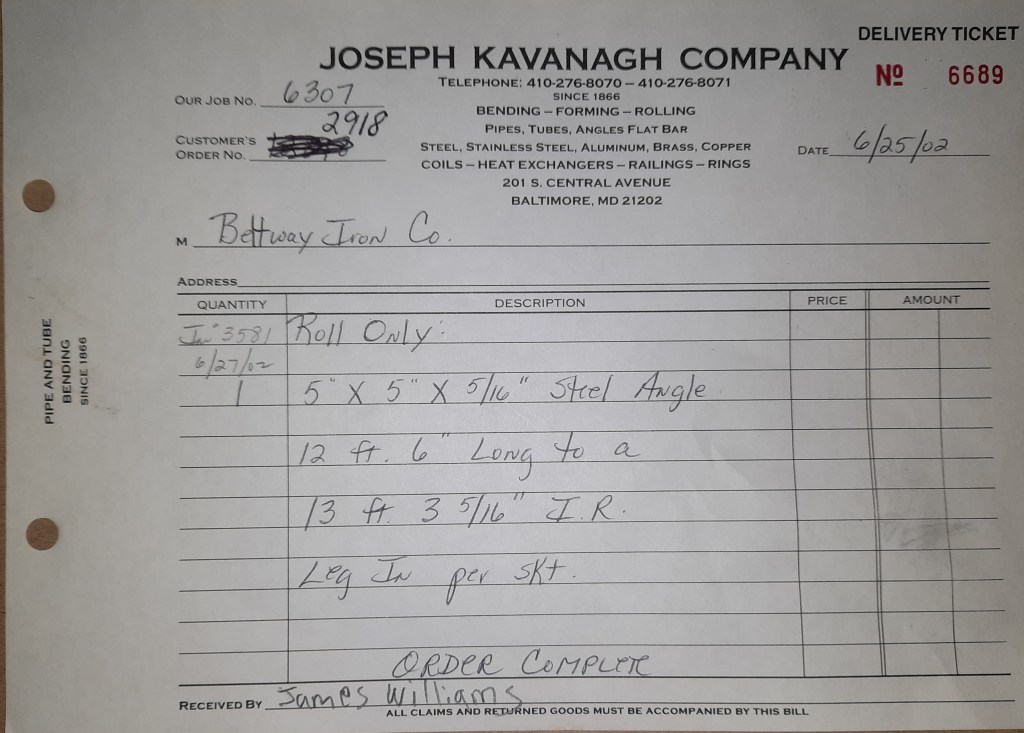 DELIVERY TICKET
JOSEPH KAVANAGH COMPANY
Nº 6689
TELEPHONE: 410-276-8070 – 410-276-8071
SINCE 1866
OUR JOB NO. 6307
BENDING – FORMING – ROLLING
PIPES, TUBES, ANGLES FLAT BAR
CUSTOMER'S ORDER NO. 2918
STEEL, STAINLESS STEEL, ALUMINUM, BRASS, COPPER
DATE 6/25/02
COILS – HEAT EXCHANGERS – RAILINGS – RINGS
201 S. CENTRAL AVENUE
BALTIMORE, MD 21202
M Beltway Iron Co.
ADDRESS
QUANTITY DESCRIPTION PRICE AMOUNT
In# 3581 Roll Only:
6/27/02
1 5" X 5" X 5/16" Steel Angle
12 ft. 6" Long to a
13 ft. 3 5/16" I.R.
Leg In per skt.
ORDER COMPLETE
RECEIVED BY James Williams
ALL CLAIMS AND RETURNED GOODS MUST BE ACCOMPANIED BY THIS BILL
PIPE AND TUBE
BENDING
SINCE 1866